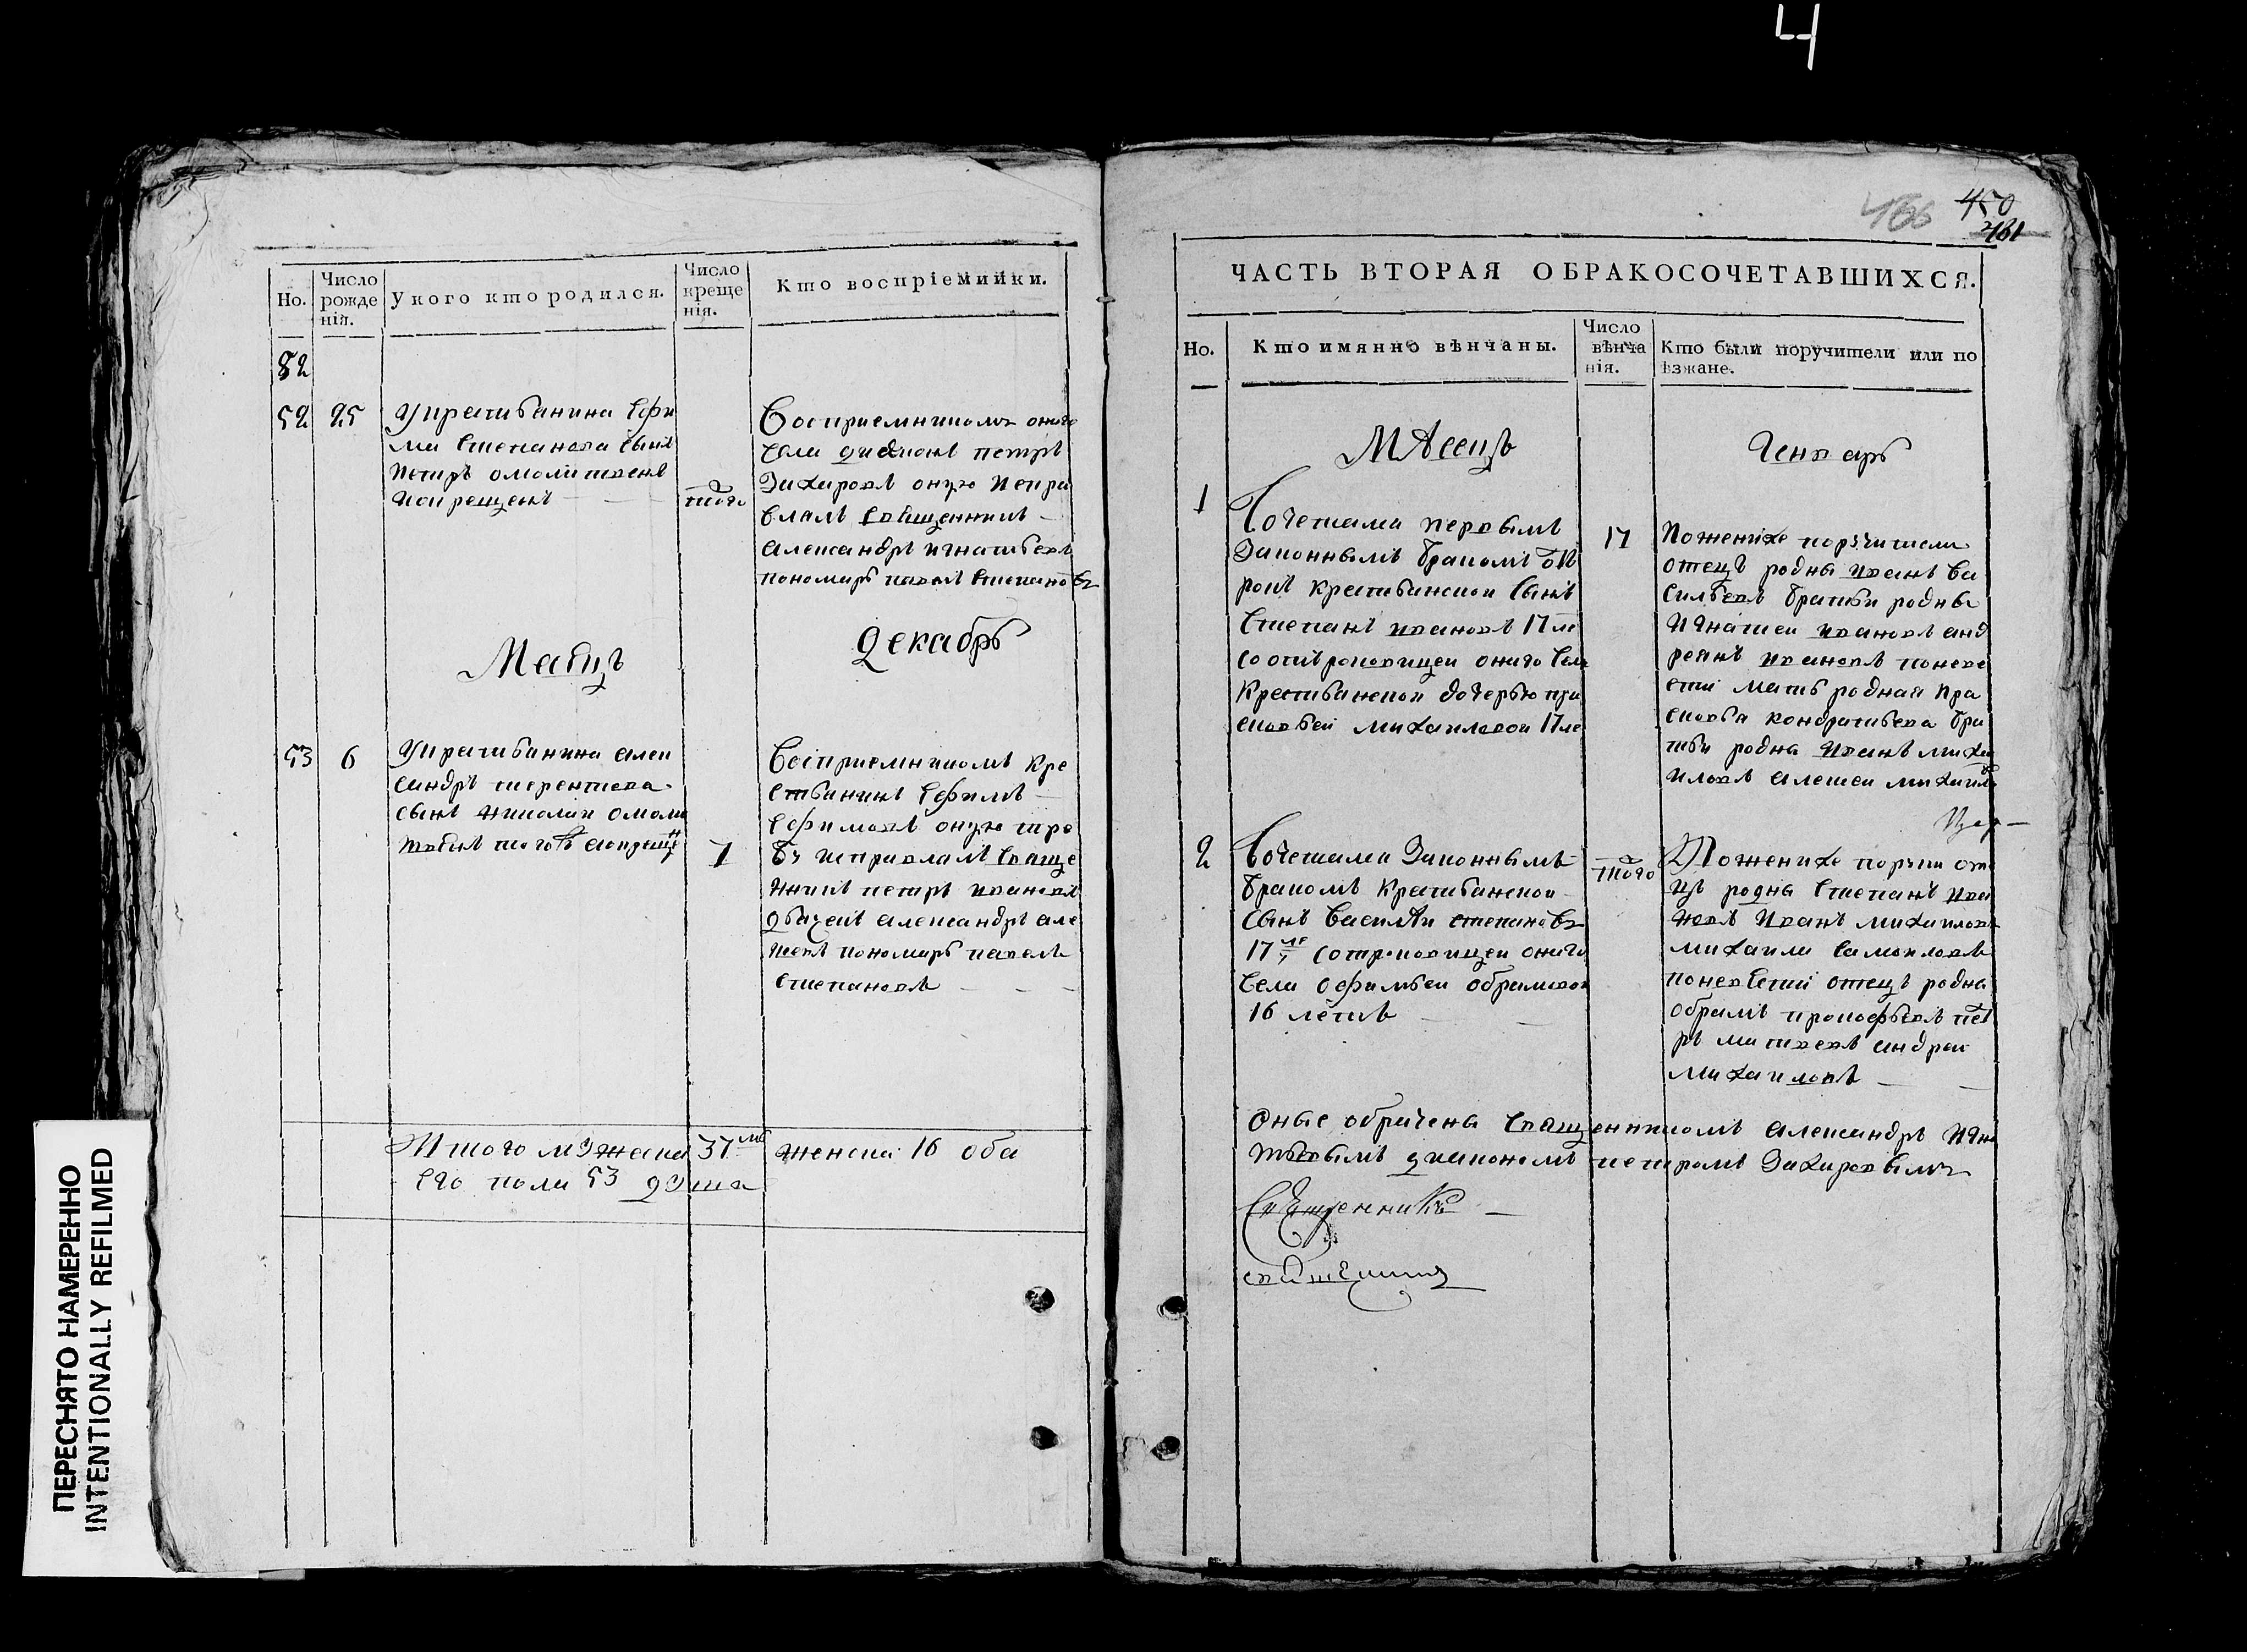 4
Но.
Число рожде нія.
У кого кто родился.
Число креще нія.
Кто воспріемники.
82
52
25
Укрестьянина Ефи
ма Степанова сынъ
Петръ омолитвенъ
и окрещенъ
того
Восприемникомъ онаго
села диаконъ петръ
Захаровъ оную исправ
влалъ священникъ
александръ игнатьевъ
пономарь павелъ Степановъ
Месецъ
декабрь
53
6
Укрестьянина алек
сандръ терентиева
сынъ николаи омоли
7
Восприемникомъ кре
стьянинъ Ефимъ
Ефимовъ оную тре
бу исправлалъ свяще
нникъ петръ ивановъ
дьячекъ александръ але
пономарь павелъ
Степановъ
Итого мужеска 37
женска 16 оба
его пола 53 душа
ПЕРЕСНЯТО НАМЕРЕННО
INTENTIONALLY REFILMED
450
461
ЧАСТЬ ВТОРАЯ ОБРАКОСОЧЕТАВШИХСЯ.
Но.
Кто имянно вѣнчаны.
Число вѣнча нія.
Кто были поручители или по ѣзжане.
Мѣсецъ
Генварь
1
Сочетали первымъ
Законнымъ бракомъ отъ
рокъ крестьянской сынъ
Степанъ ивановъ 17 ле
со отъроковицеи онаго села
крестьянской дочерью пра
сковьеи михаиловои 17 ле
17
По женихе поручители
отецъ родны иванъ ва
сильевъ братьи родны
Игнатеи ивановъ анд
реянъ ивановъ поневе
сти мать родная пра
сковья кондратьева бра
тьи родна иванъ миха
иловъ алексеи михаило
2
Сочетали Законнымъ
бракомъ крестьянской
сынъ василѣи степановъ
17 ле сотроковицеи онаго
села офимьеи обрамовои
16 летъ
того
По женихе поручи оте
цъ родны Степанъ ива
новъ Иванъ михаиловъ
михаила самоиловъ
поневести отецъ родны
обрамъ прокофьевъ пет
ръ матвеевъ андреи
михаиловъ
Оные обвенчены священникомъ александръ Игна
тьевымъ диакономъ петромъ Захаровымъ
Священникъ